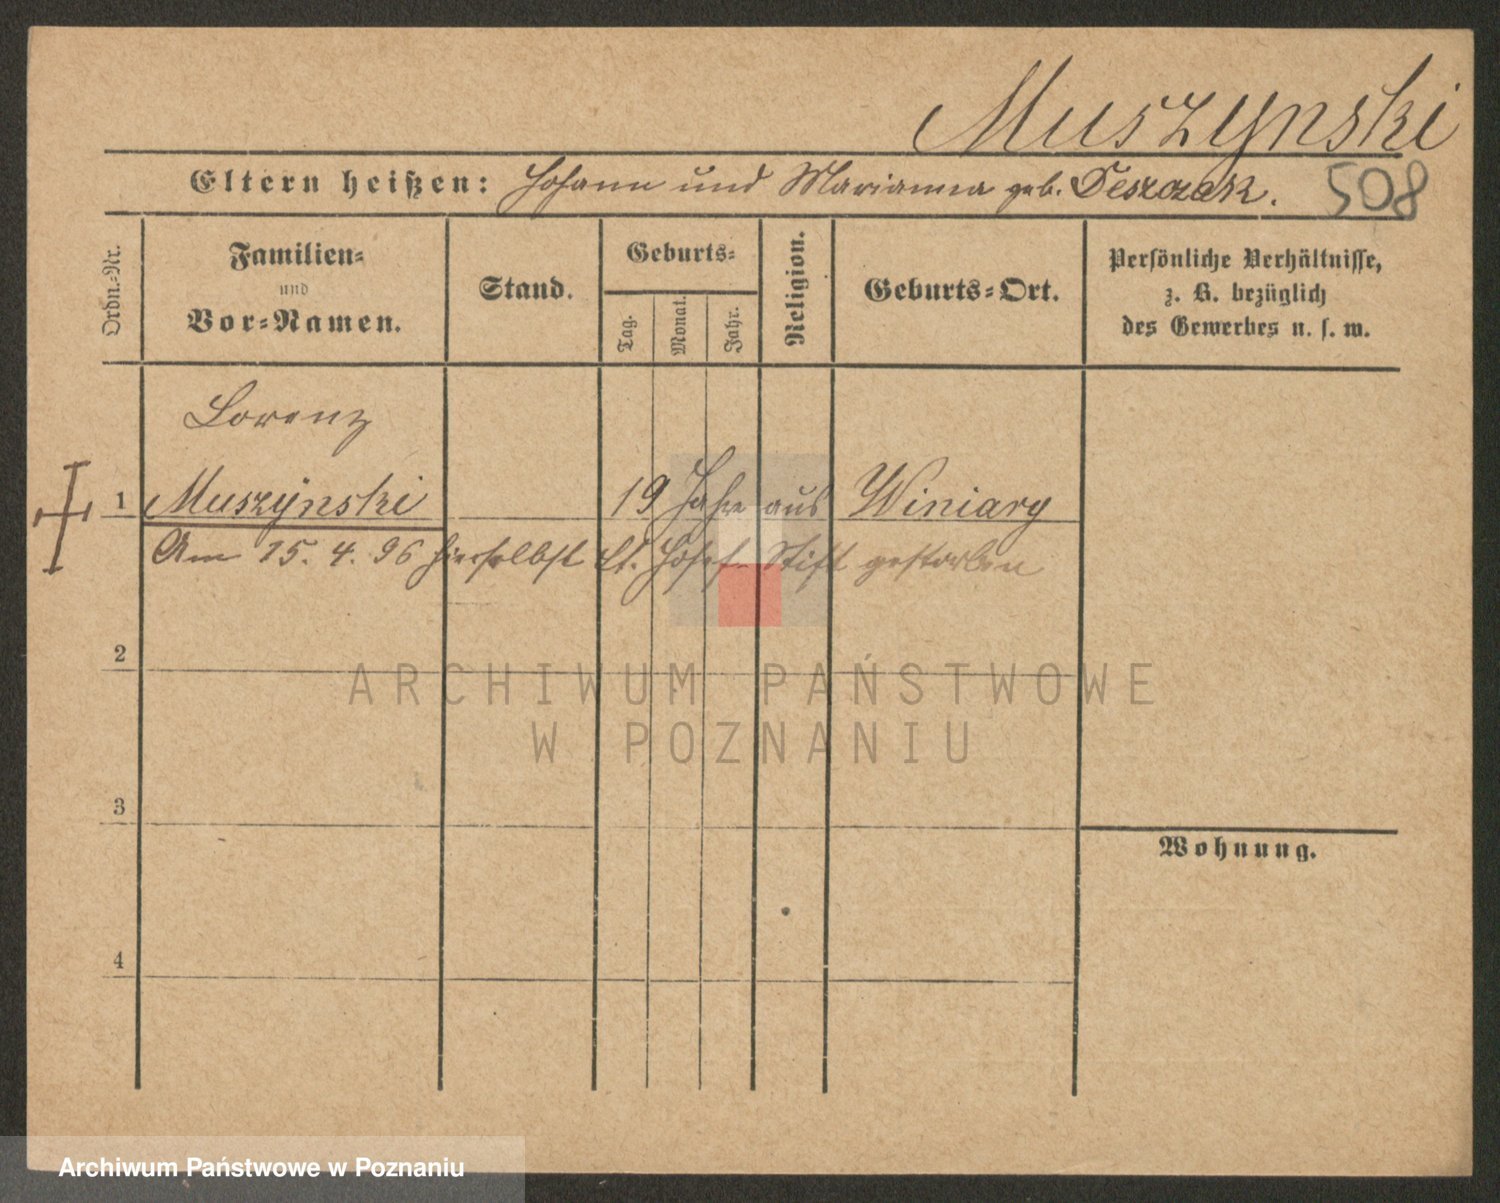 Muszynski
Eltern heißen: Johann und Marianna geb. Deszczak.
508
Ordn.-Nr.
Familien-
und
Vor-Namen.
Stand.
Geburts-
Tag.
Monat.
Jahr.
Religion.
Geburts-Ort.
Persönliche Verhältnisse,
z. B. bezüglich
des Gewerbes u. s. w.
Lorenz
1 Muszynski 19 Jahre aus Winiary
Am 15. 4. 96 hierselbst St. Josef-Stift gestorben
2
ARCHIWUM PAŃSTWOWE
W POZNANIU
3
Wohnung.
4
Archiwum Państwowe w Poznaniu